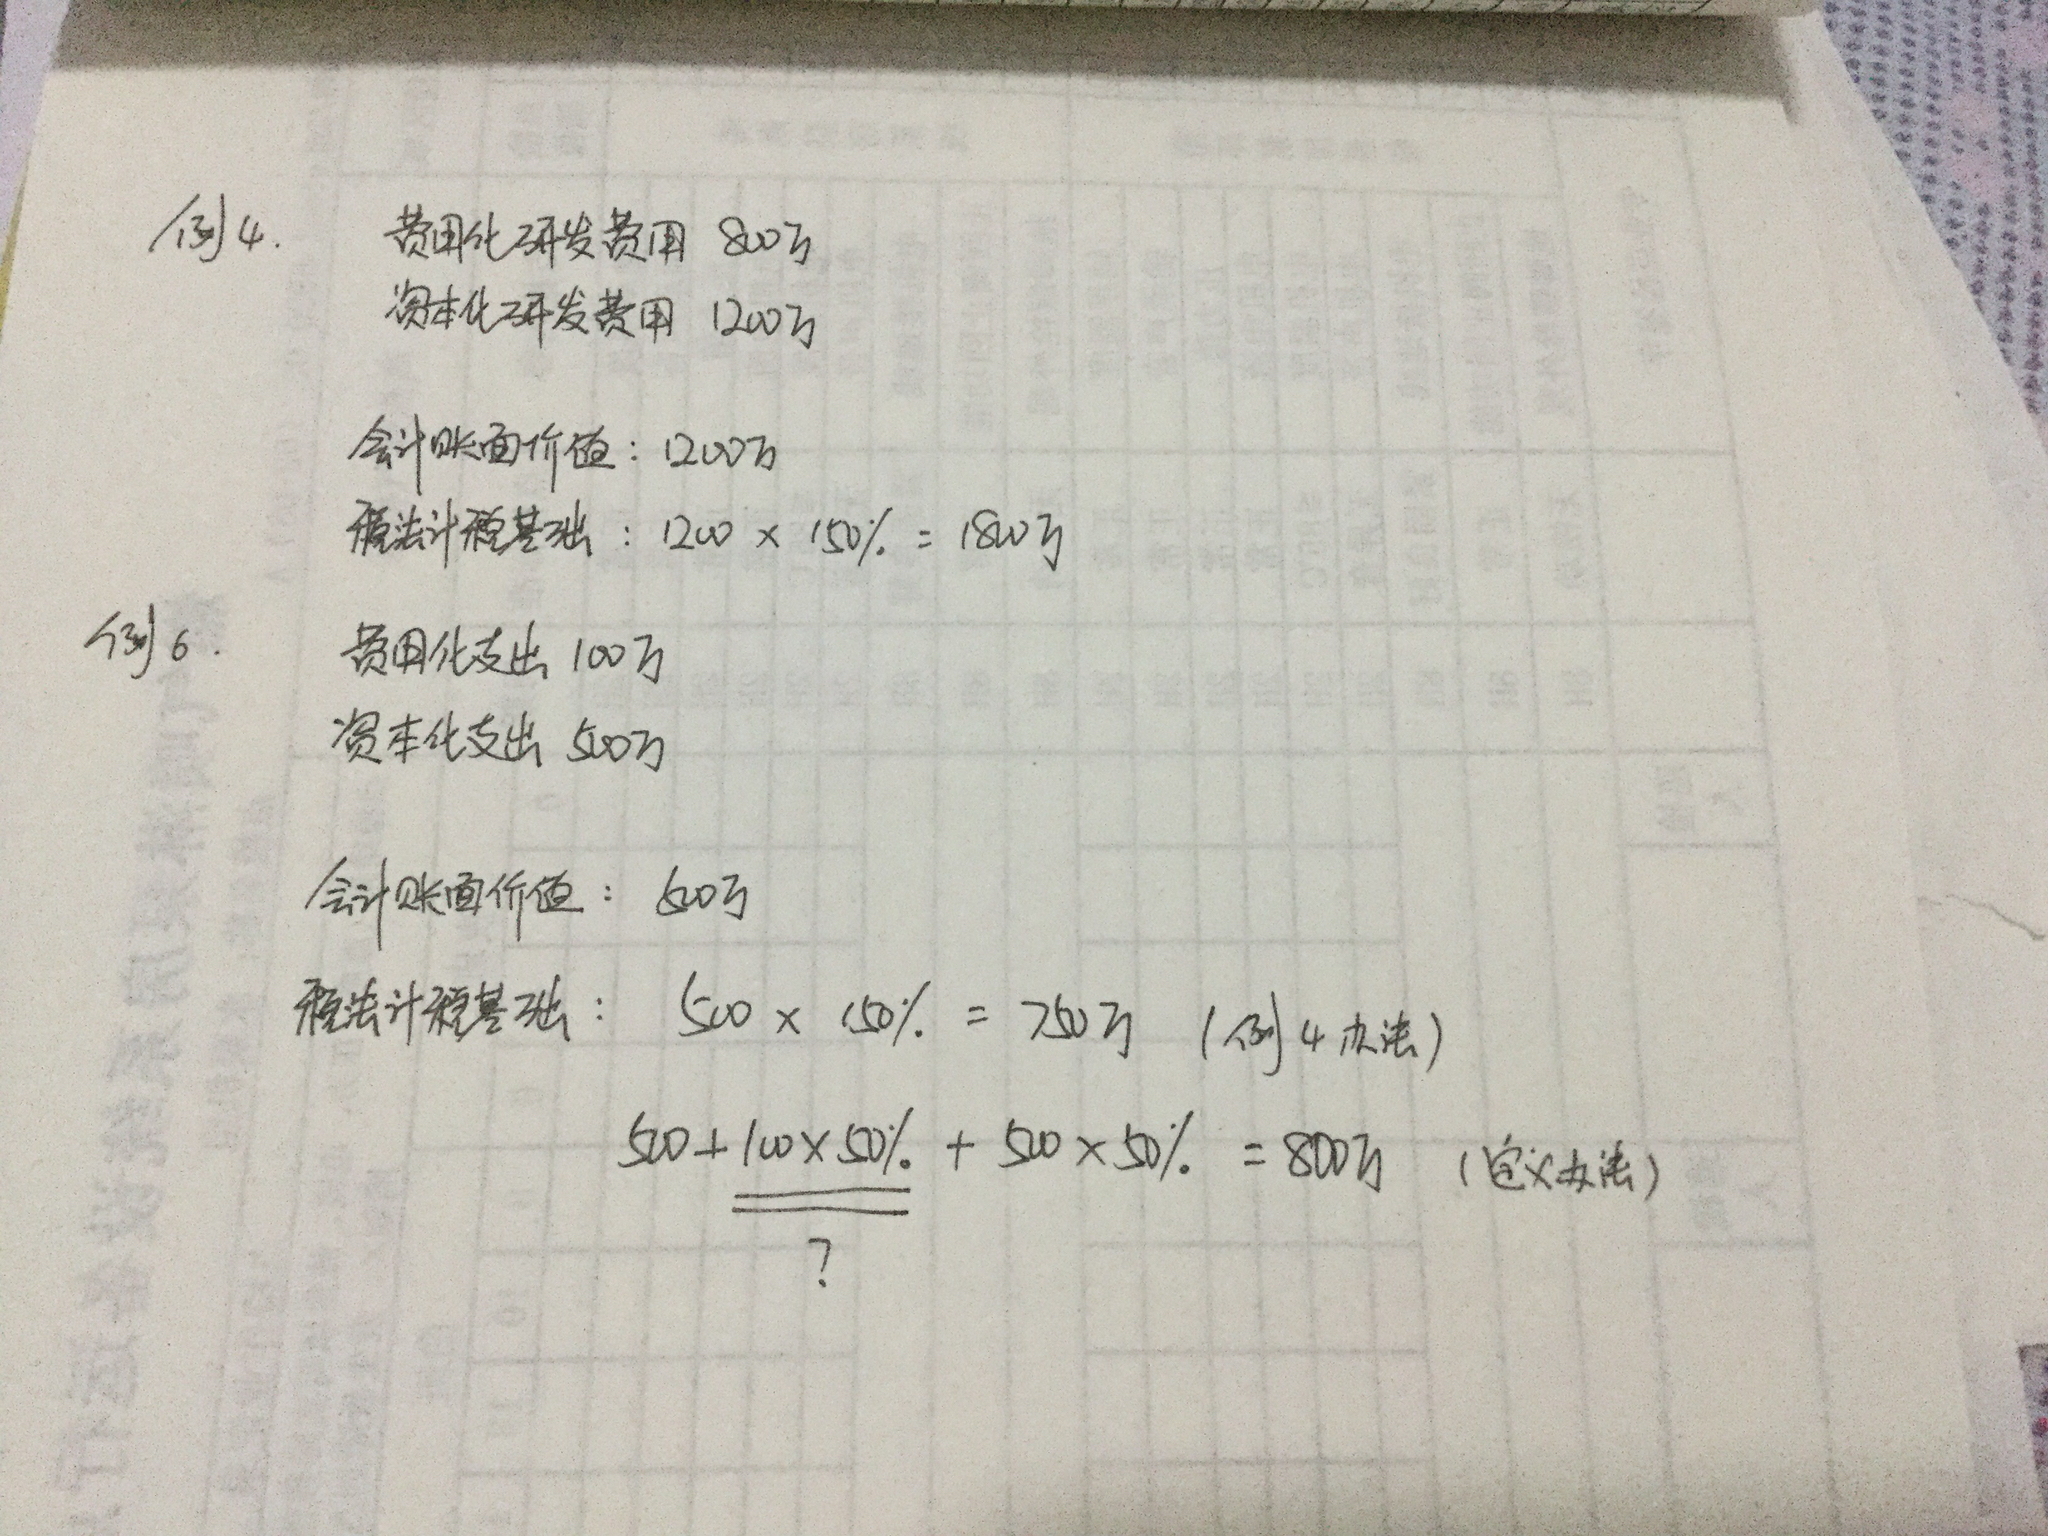 例4. 费用化研发费用 800万
资本化研发费用 1200万
会计账面价值: 1200万
税法计税基础: 1200 × 150% = 1800万
例6. 费用化支出 100万
资本化支出 500万
会计账面价值: 500万
税法计税基础: 500 × 150% = 750万 (例4办法)
500+100×50% + 500×50% = 800万 (定义办法)
?